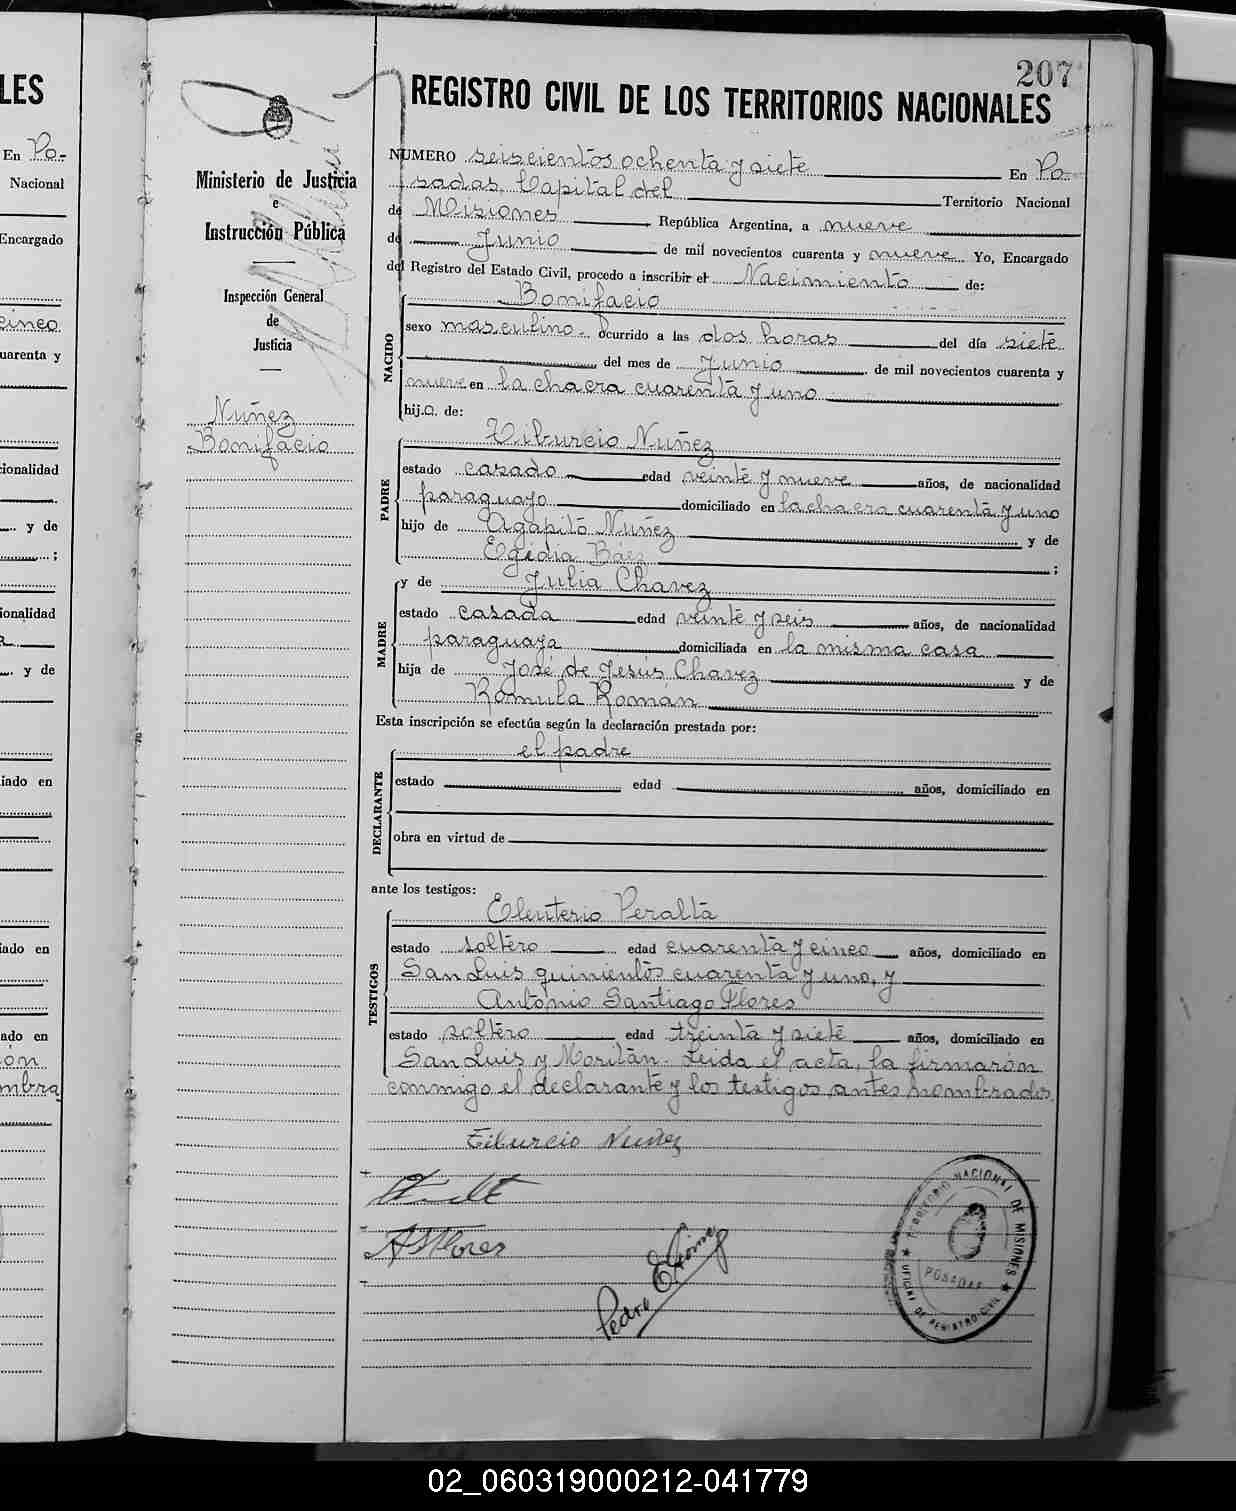 207
REGISTRO CIVIL DE LOS TERRITORIOS NACIONALES
Ministerio de Justicia
e
Instrucción Pública
Inspección General
de
Justicia
Nuñez
Bonifacio
NUMERO seiscientos ochenta y siete En Po-
sadas, Capital del Territorio Nacional
de Misiones República Argentina, a nueve
de Junio de mil novecientos cuarenta y nueve Yo, Encargado
del Registro del Estado Civil, procedo a inscribir el Nacimiento de:
NACIDO
Bonifacio
sexo masculino. ocurrido a las dos horas del día siete
del mes de Junio de mil novecientos cuarenta y
nueve en la chacra cuarenta y uno
hij.o. de:
PADRE
Tiburcio Nuñez
estado casado edad veinte y nueve años, de nacionalidad
paraguayo domiciliado en la chacra cuarenta y uno
hijo de Agapito Nuñez y de
Egidia Báez ;
MADRE
y de Julia Chavez
estado casada edad veinte y seis años, de nacionalidad
paraguaya domiciliada en la misma casa
hija de José de Jesús Chavez y de
Romula Román
Esta inscripción se efectúa según la declaración prestada por:
DECLARANTE
el padre
estado edad años, domiciliado en
obra en virtud de
ante los testigos:
TESTIGOS
Eleuterio Peralta
estado soltero edad cuarenta y cinco años, domiciliado en
San Luis quinientos cuarenta y uno, y
Antonio Santiago Flores
estado soltero edad treinta y siete años, domiciliado en
San Luis y Moritán. Leida el acta, la firmarón
conmigo el declarante y los testigos antes nombrados
Tiburcio Nuñez
A S Flores
Pedro E.
TERRITORIO NACIONAL DE MISIONES
POSADAS
OFICINA DE REGISTRO CIVIL
LES
En Po-
Nacional
Encargado
cinco
uarenta y
cionalidad
y de
;
ionalidad
y de
iado en
iado en
ado en
ón
mbra
02_060319000212-041779